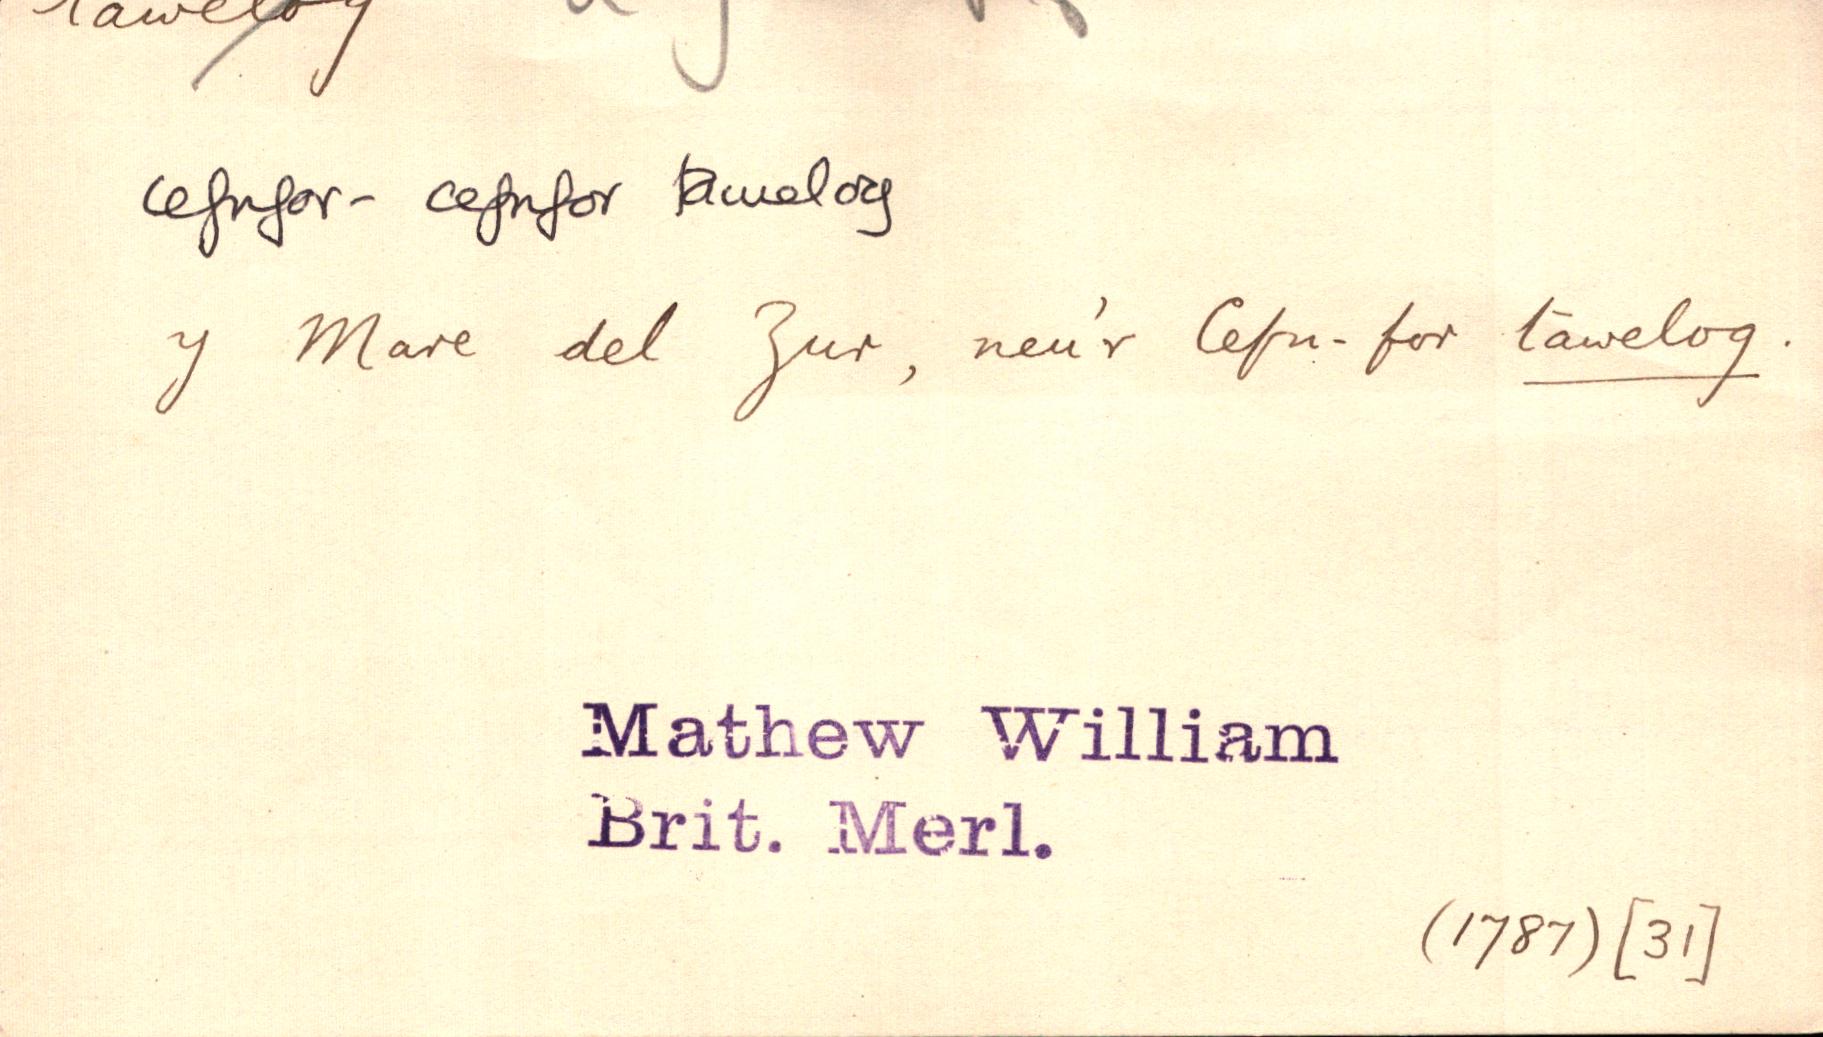 tawelog
cefnfor- cefnfor tawelog
y Mare del Zur, neu'r Cefn-for tawelog.
Mathew William
Brit. Merl.
(1787) [31]